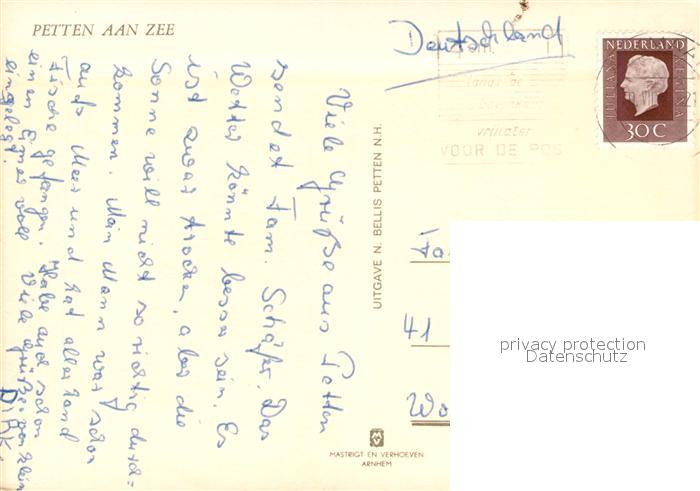 PETTEN AAN ZEE
Viele Grüße aus Petten
sendet Fam. Schäfer. Das
Wetter könnte besser sein. Es
ist zwar trocken, aber die
Sonne will nicht so richtig durch=
kommen. Mein Mann war schon
aufs Meer und hat allerhand
Fische gefangen. Habe auch schon
einen Eimer voll
eingelegt. Viele Grüße von klein
Dirk
UITGAVE N. BELLIS PETTEN N.H.
MASTRIGT EN VERHOEVEN
ARNHEM
Deutschland
VOOR DE POS
NEDERLAND
JULIANA REGINA
30 C
41
Wo
privacy protection
Datenschutz